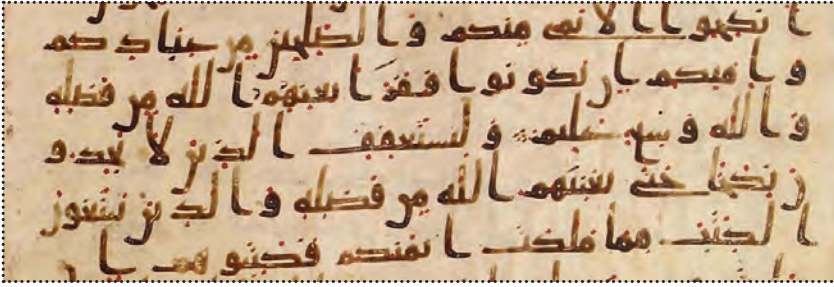 انكحوا الايمى منكم والصلحين من عبادكم
وامئكم ان يكونوا فقرا يغنهم الله من فضله
والله وسع عليم وليستعفف الذين لا يجدو
ن نكحا حتى يغنيهم الله من فضله والذين يبتغون
الكتب مما ملكت ايمنكم فكتبوهم ا